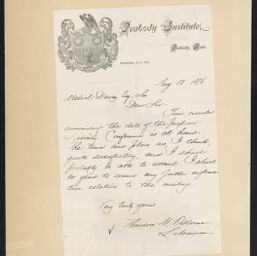 Peabody Institute,
Peabody, Mass.
Aug 18 1876
Melvil Dewey Esq
Dear Sir
Your circular
announcing the date of the proposed
Library Conference is at hand.
The time and place are, I think
quite satisfactory, and I shall
probably be able to attend. I shall
be glad to receive any further
time relative to the meeting
Very truly yours
Theodore M. Osborne
Librarian